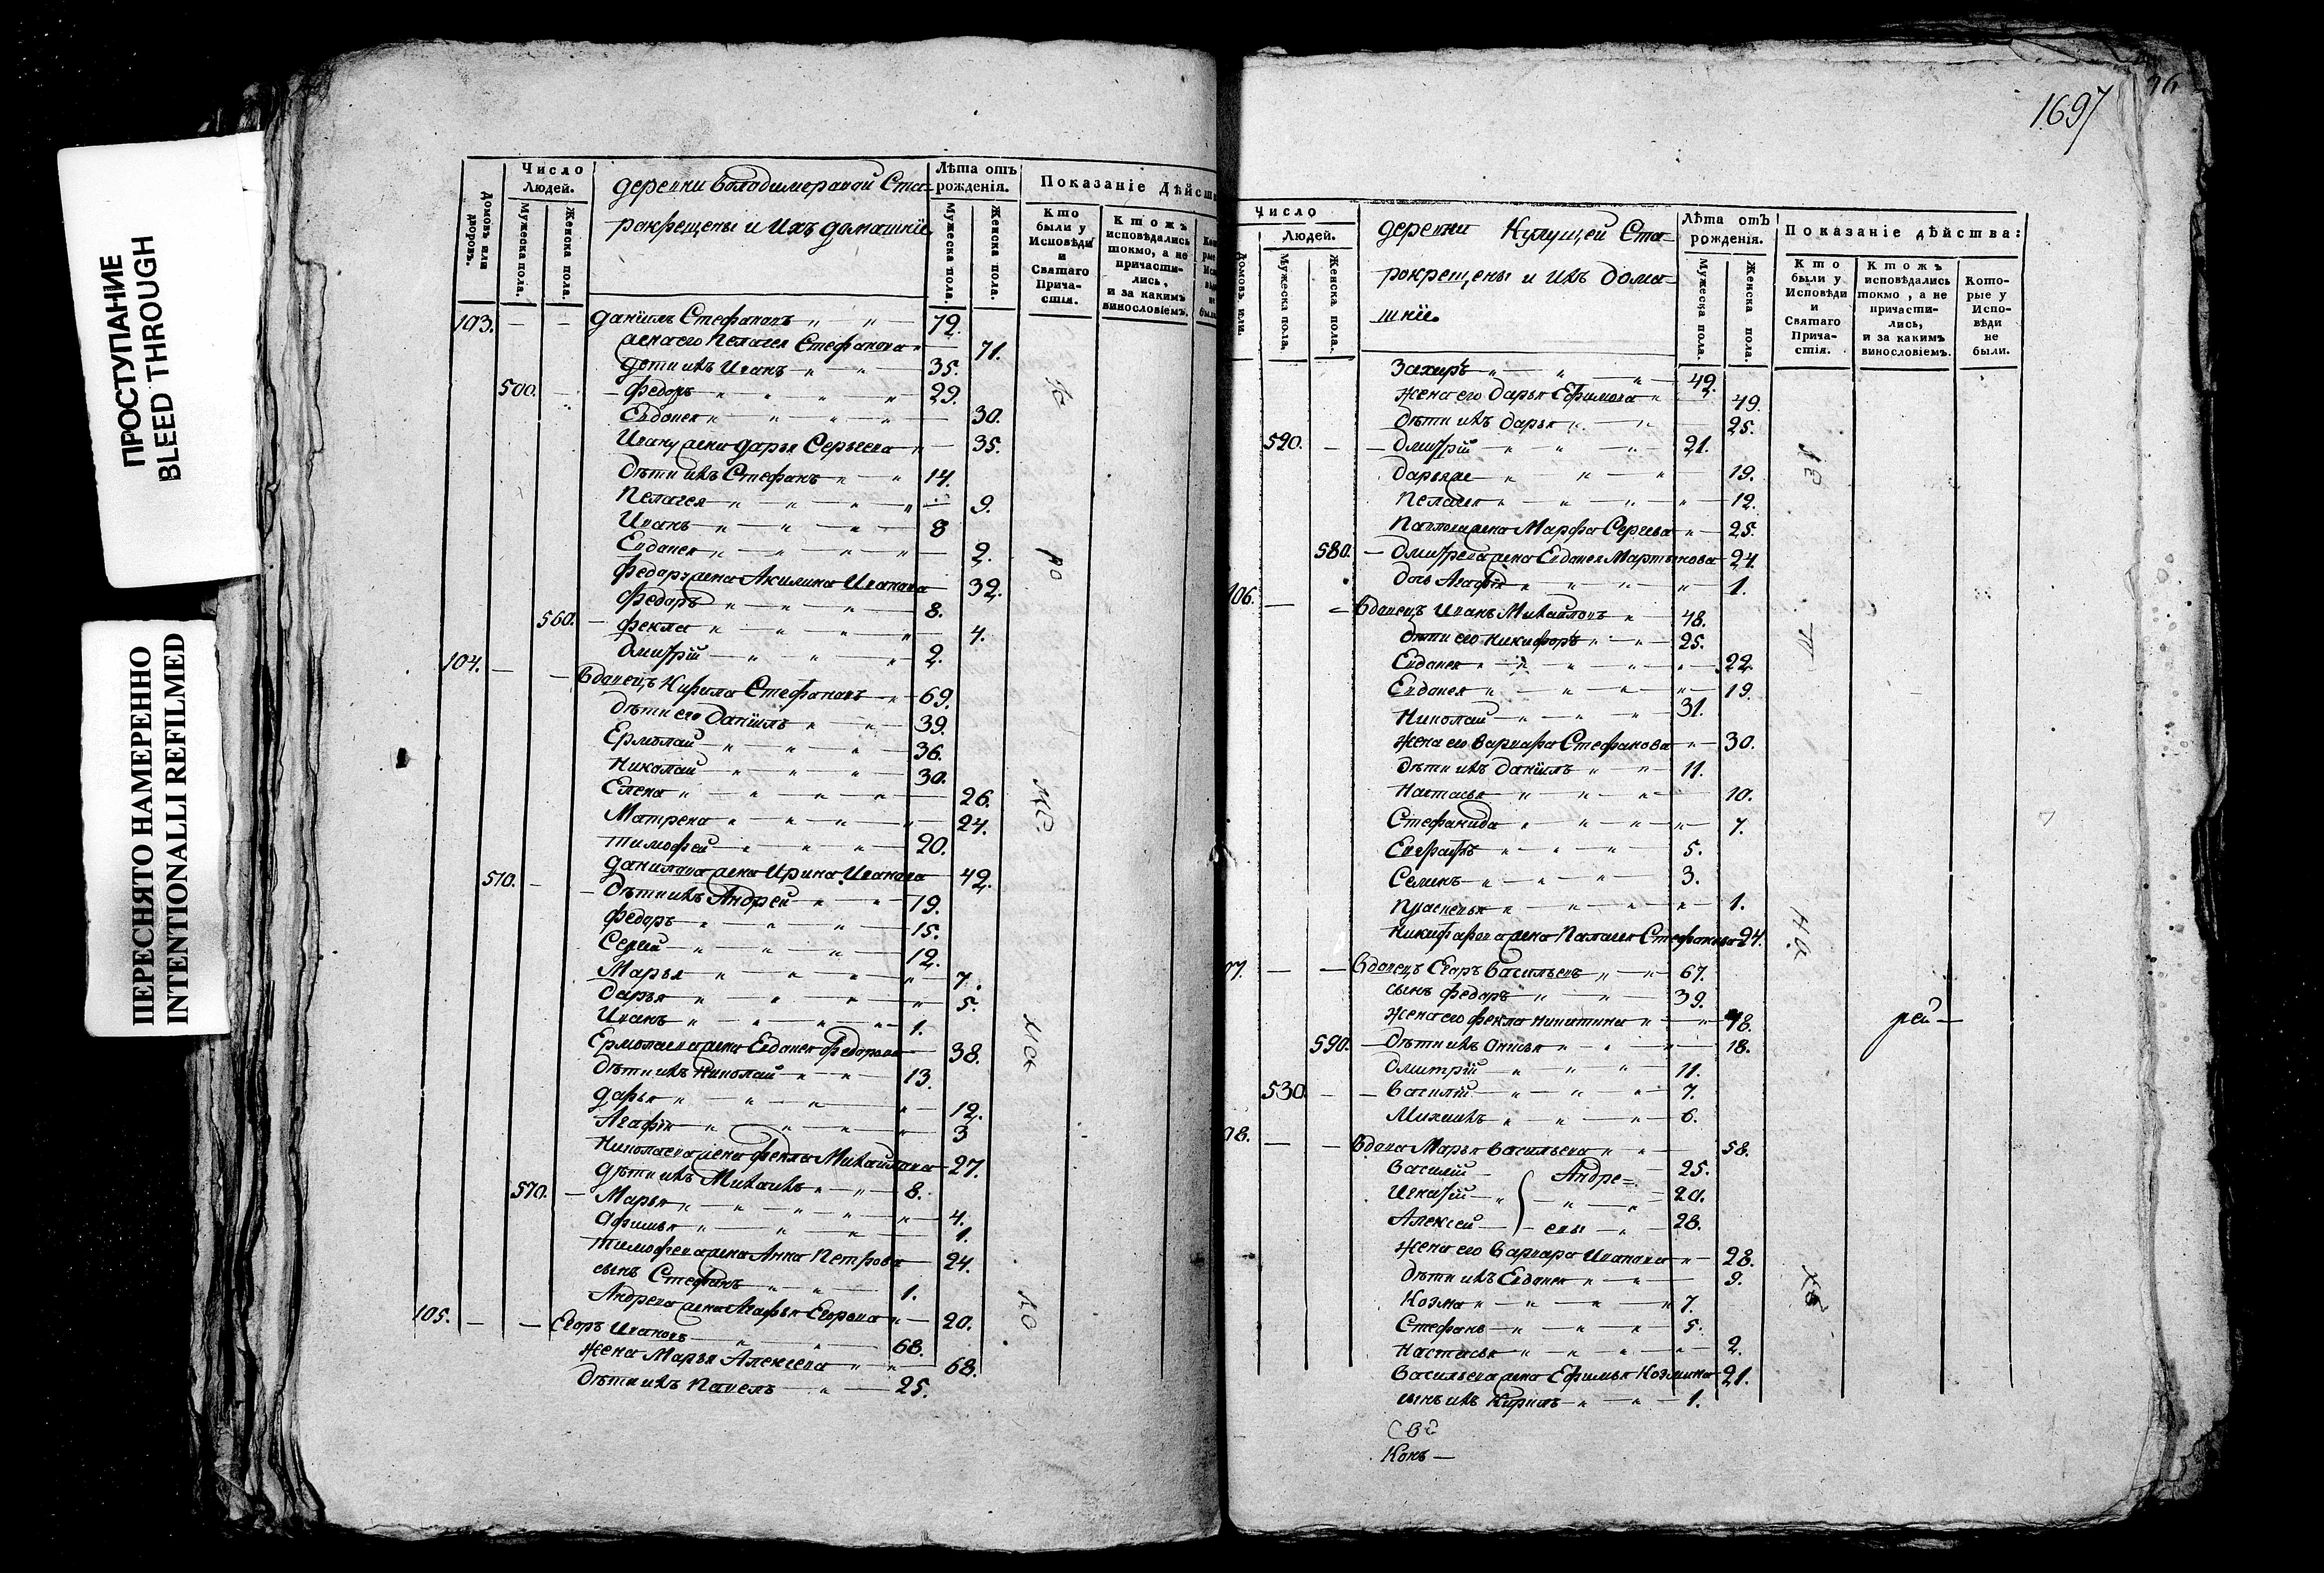 ПРОСТУПАНИЕ
BLEED THROUGH
ПЕРЕСНЯТО НАМЕРЕННО
INTENTIONALLI REFILMED
Домовъ или дворовъ.
Число Людей.
Мужеска пола.
Женска пола.
деревни Ста-
рокрещены и ихъ домашніе
Лѣта отъ рожденія.
Мужеска пола.
Женска пола.
Показаніе Дѣйств
Кто были у Исповѣди и Святаго Прича-стія.
Ктожъ исповѣдались токмо, а не причасти-лись, и за какимъ винословіемъ.
103. — — Даніилъ Стефановъ 72.
жена его Пелагея Стефанова 71.
дети ихъ Иванъ 35.
500. — Федоръ 29.
Евдокея 30.
Ивану жена Дарья Сергеева 35.
Дѣти ихъ Стефанъ 14.
Пелагея 9.
Иванъ 8
Евдокея 2.
Федору жена Акилина Иванова 32.
Федоръ 8.
560. — Фекла 4.
Дмитрій 2.
104. — — Вдовецъ Кирила Стефановъ 69.
Дѣти его Даніилъ 39.
Ермолай 36.
Николай 30.
Елена 26.
Матрена 24.
Тимофей 20.
Данилова жена Ирина Иванова 42.
510. — Дѣти ихъ Андрей 19.
Федоръ 15.
Сергій 12.
Марья 7.
Дарья 5.
Иванъ 1.
Ермолаева жена Евдокея Федорова 38.
Дѣти ихъ Николай 13.
Дарья 12.
Агафія 3
Николаева жена Фекла Михайлова 27.
Дѣти ихъ Михаилъ 8.
570. — Марья 4.
Афимья 1.
Тимофеева жена Анна Петрова 24.
сынъ Стефанъ 1.
Андреева жена Агафья Егорова 20.
105. — — Егоръ Ивановъ 68.
жена Марья Алексеева 68.
Дѣти ихъ Павелъ 25.
1697
Домовъ или
Число Людей.
Мужеска пола.
Женска пола.
деревни Кулущей Ста-
рокрещены и ихъ дома-
шніе
Лѣта отъ рожденія.
Мужеска пола.
Женска пола.
Показаніе дѣйства:
Кто были у Исповѣди и Святаго Прича-стія.
Ктожъ исповѣдались токмо, а не причасти-лись, и за какимъ винословіемъ.
Кото-рые у Испо-вѣди не были.
Захаръ 42.
жена его Дарья Ефимова 49.
Дѣти ихъ Дарья 25.
520. — Дмитрій 21.
Дарья 19.
Пелагея 12.
Павлова жена Марфа Сергеева 25.
580. — Дмитрева жена Евдокея Мартынова 24
Дочь Агафія 1.
106. — — Вдовецъ Иванъ Михайловъ 48.
Дѣти его Никифоръ 25.
Евдокея 22.
Евдокея 19.
Николай 31.
жена его Варвара Стефанова 30.
Дѣти ихъ Даніилъ 11.
Настасья 10.
Стефанида 7.
5.
Семенъ 3.
1.
Никифорова жена Палагея Стефанова 24.
07. — — Вдовецъ Егоръ Васильевъ 67.
сынъ Федоръ 39.
жена его Фекла Никитина 48.
590. — Дѣти ихъ Анисья 18.
Дмитрій 11.
530. — Василій 7.
Михаилъ 6.
08. — — Вдова Марья Васильева 58.
Василій Андре= 25.
Игнатій 20.
Алексѣй евы 28.
жена его Варвара Иванова 28.
Дѣти ихъ Евдокея 9.
Козма 7.
Стефанъ 5.
Настасья 2.
Васильева жена Ефимья Козмина 21.
сынъ ихъ Кирилъ 1.
рей —